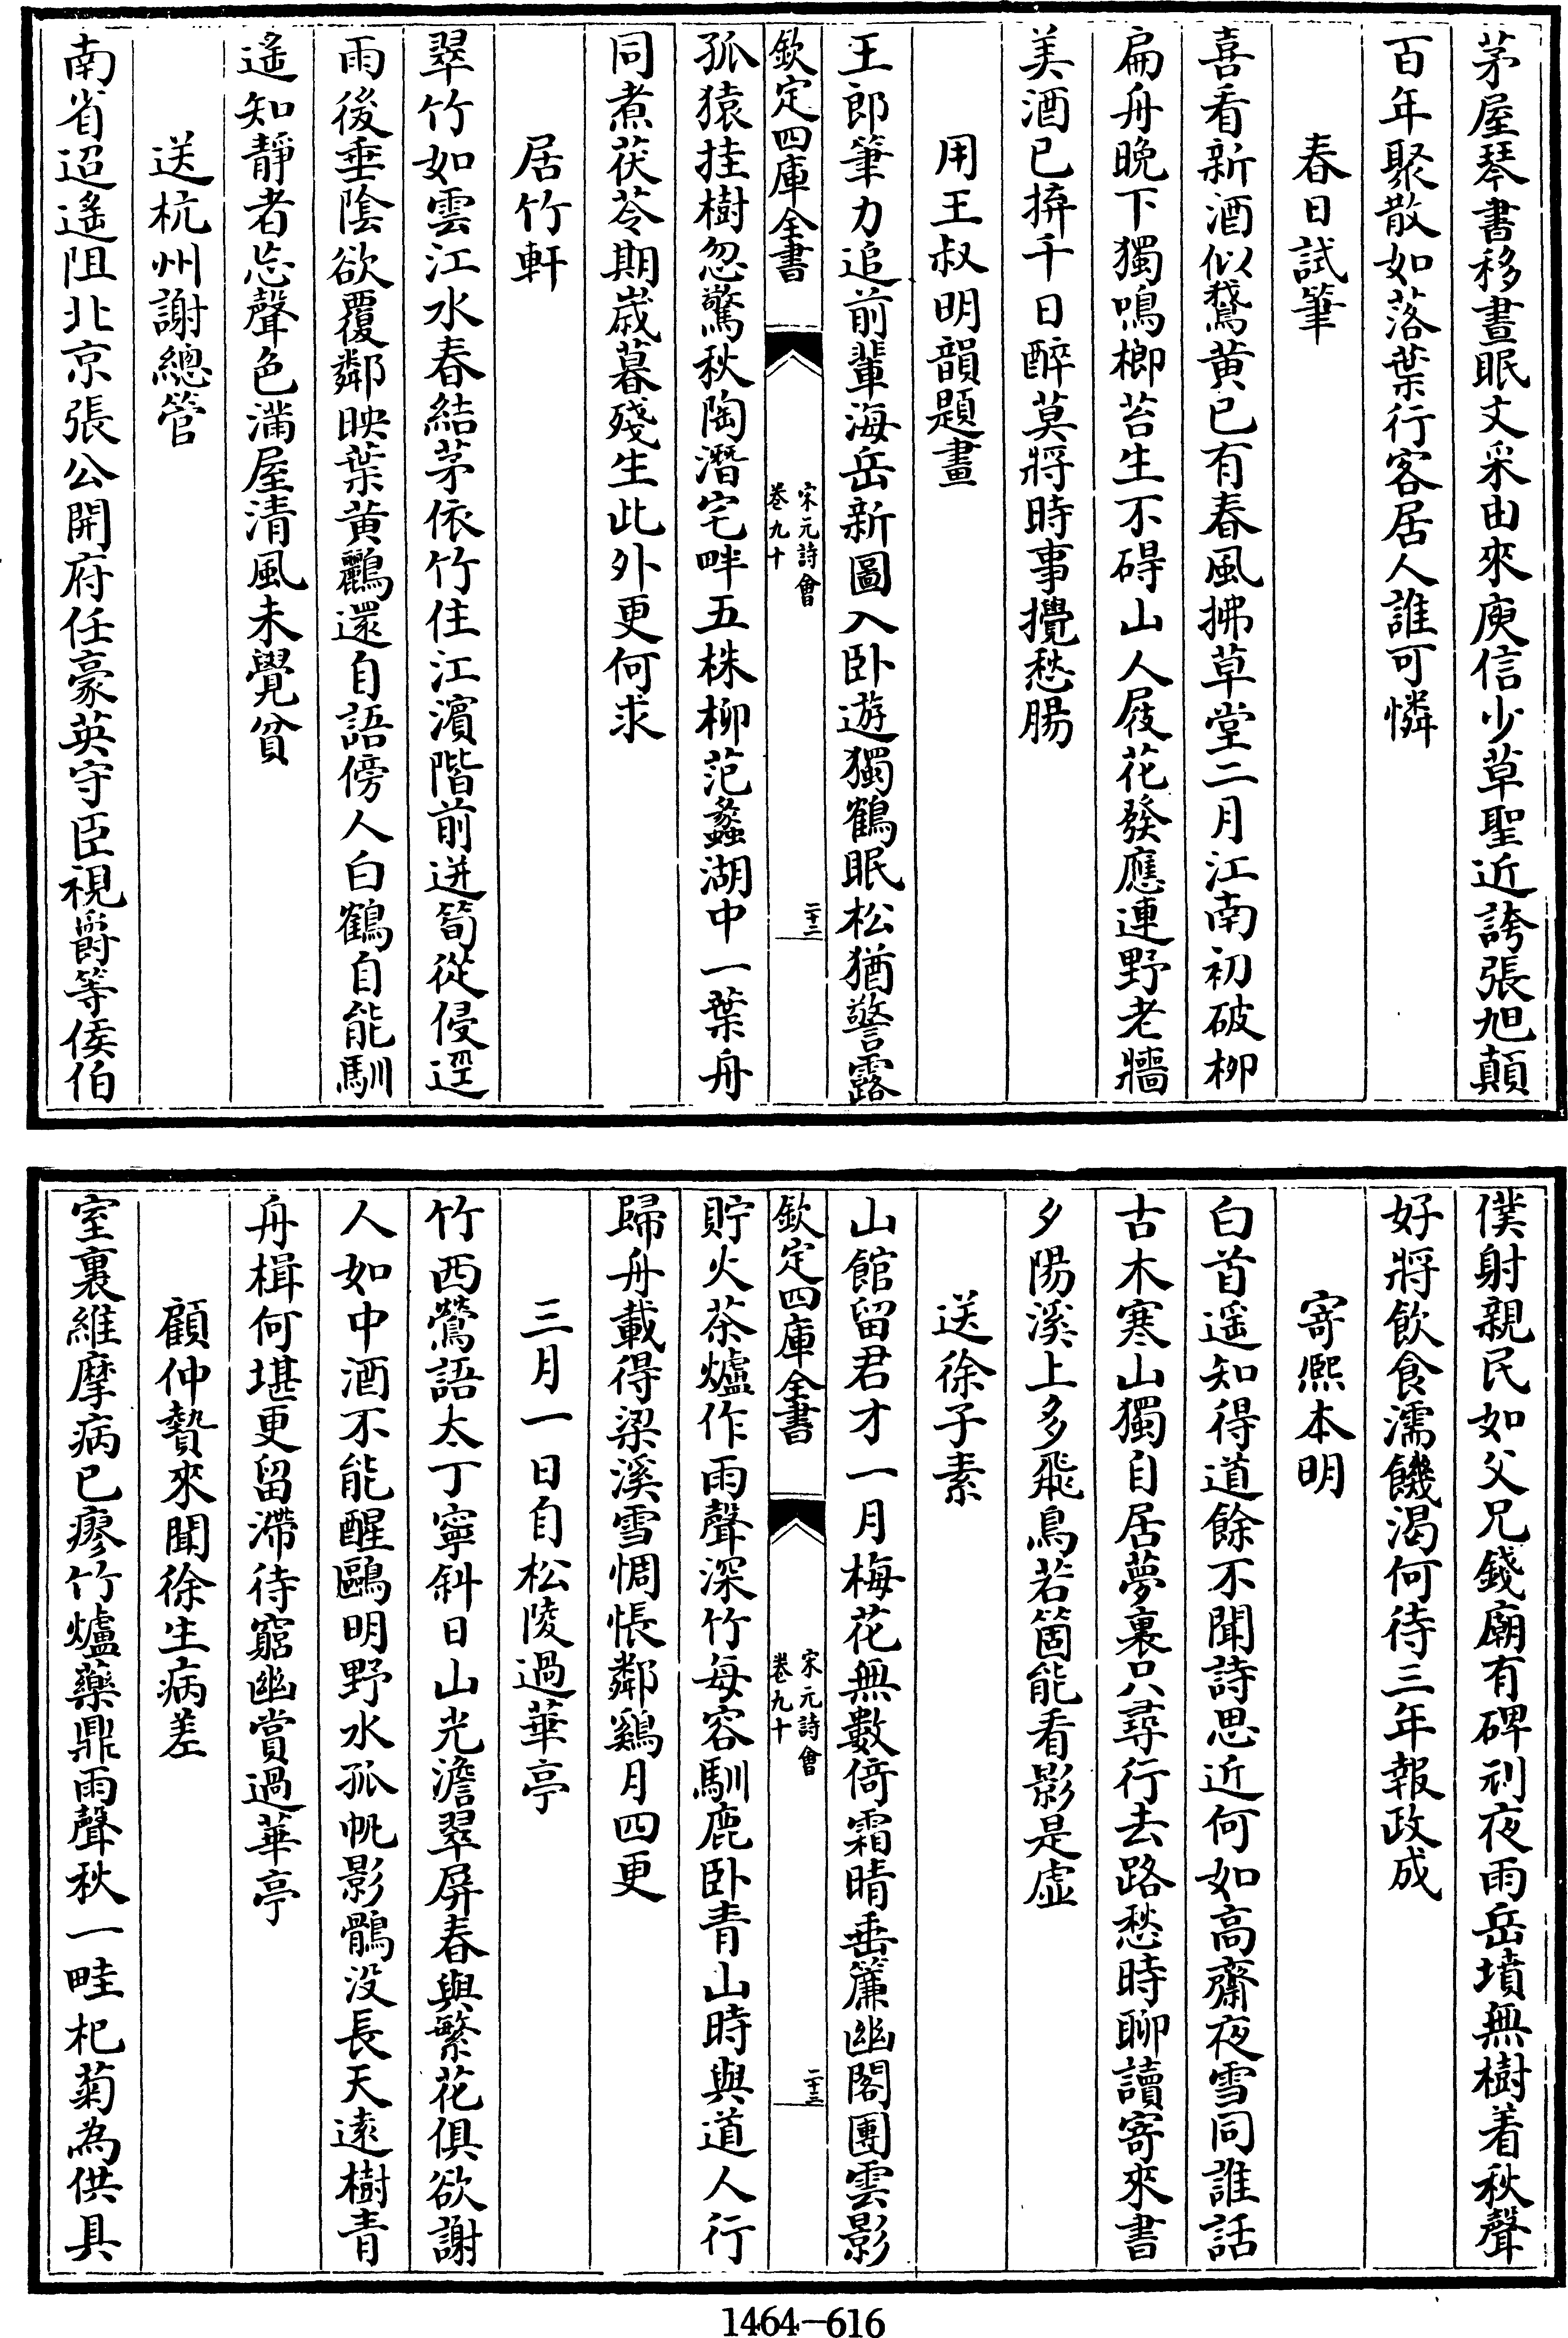 茅屋琴書移晝眠文采由來庾信少草聖近誇張旭顛
百年聚散如落葉行客居人誰可憐
春日試筆
喜看新酒似鵞黄已有春風拂草堂二月江南初破柳
扁舟晚下獨鳴榔苔生不碍山人屐花發應連野老牆
美酒已拚千日醉莫將時事攪愁腸
用王叔明韻題畫
王郎筆力追前輩海岳新圖入卧遊獨鶴眠松猶警露
欽定四庫全書
宋元詩會
卷九十
二十二
孤猿挂樹忽驚秋陶潛宅畔五株柳范蠡湖中一葉舟
同煮茯苓期歲暮殘生此外更何求
居竹軒
翠竹如雲江水春結茅依竹住江濱階前迸筍從侵逕
雨後垂陰欲覆鄰映葉黄鸝還自語傍人白鶴自能馴
遥知靜者忘聲色滿屋清風未覺貧
送杭州謝總管
南省迢遥阻北京張公開府任豪英守臣視爵等侯伯
僕射親民如父兄錢廟有碑刓夜雨岳墳無樹着秋聲
好將飲食濡饑渴何待三年報政成
寄熙本明
白首遥知得道餘不聞詩思近何如高齋夜雪同誰話
古木寒山獨自居夢裏只尋行去路愁時聊讀寄來書
夕陽溪上多飛鳥若箇能看影是虛
送徐子素
山館留君才一月梅花無數倚霜晴垂簾幽閣團雲影
欽定四庫全書
宋元詩會
卷九十
二十三
貯火茶爐作雨聲深竹每容馴鹿卧青山時與道人行
歸舟載得梁溪雪惆悵鄰鷄月四更
三月一日自松陵過華亭
竹西鶯語太丁寧斜日山光澹翠屏春與繁花俱欲謝
人如中酒不能醒鷗明野水孤帆影鶻没長天遠樹青
舟楫何堪更留滯待窮幽賞過華亭
顧仲贄來聞徐生病差
室裏維摩病已瘳竹爐藥鼎雨聲秋一畦杞菊為供具
1464-616